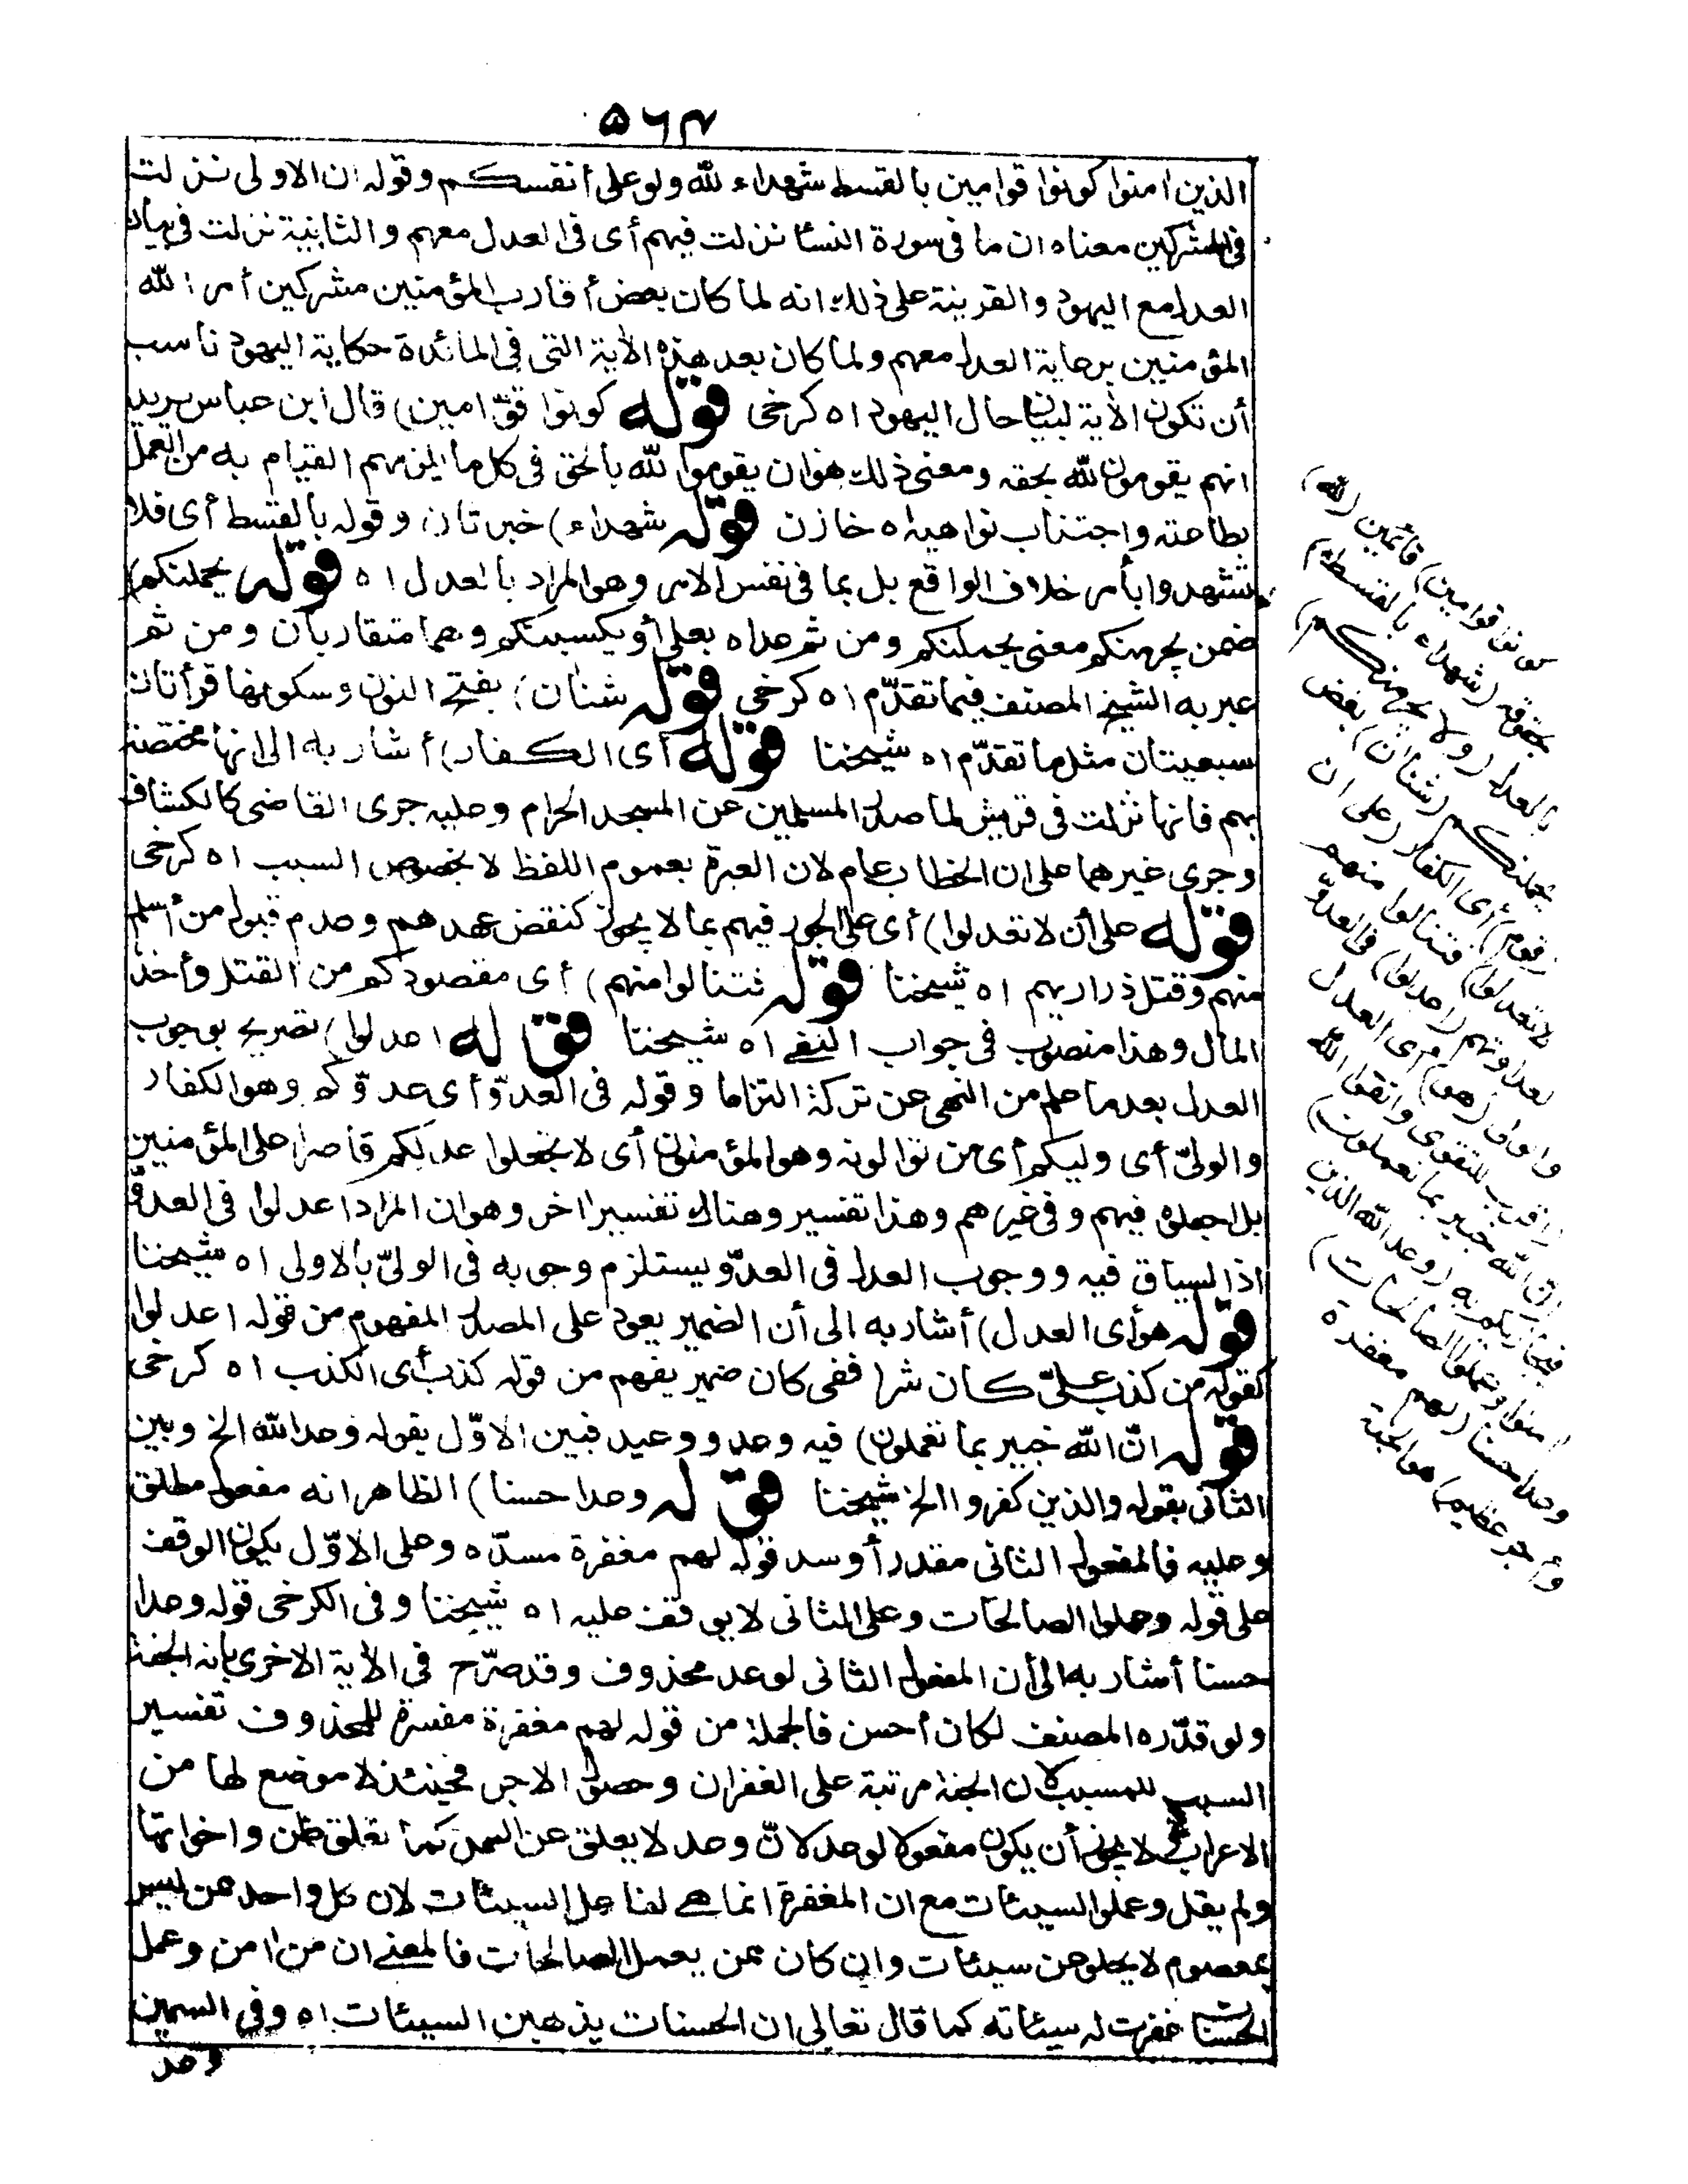 ٥٦٤
الذين امنوا كونوا قوامين بالقسط شهداء لله ولو على أنفسكم وقوله ان الاولى نزلت
فى المشركين معناه ان ما فى سورة النسا نزلت فيهم أى فى العدل معهم والثانية نزلت فى بيان
العدل مع اليهود والقرينة على ذلك انه لما كان بعض أقارب المؤمنين مشركين أمر الله
المؤمنين برعاية العدل معهم ولما كان بعد هذه الاٰية التى فى المائدة حكاية اليهود ناسب
أن تكون الاٰية لبيان حال اليهود اه كرخى قوله كونوا قوّامين) قال ابن عباس يريد
انهم يقومون لله بحقه ومعنى ذلك هو ان يقوموا لله بالحق فى كل ما يلزمهم القيام به من العمل
بطاعته واجتناب نواهيه اه خازن قوله شهداء) خبر ثان وقوله بالقسط أى فلا
تشهدوا بأمر خلاف الواقع بل بما فى نفس الامر وهو المراد بالعدل اه قوله يحملنكم)
ضمن يجرمنكم معنى يحملنكم ومن ثم عداه بعلى أو يكسبنكم وهما متقاربان ومن ثم
عبر به الشيخ المصنف فيما تقدّم اه كرخى قوله شناٰن) بفتح النون وسكونها قرأتان
سبعيتان مثل ما تقدّم اه شيخنا قوله أى الكفار) أشار به الى انها مختصة
بهم فانها نزلت فى قريش لما صدّ المسلمين عن المسجد الحرام وعليه جرى القاضى كالكشاف
وجرى غيرهما على ان الخطاب عام لان العبرة بعموم اللفظ لا بخصوص السبب اه كرخى
قوله على أن لا تعدلوا) أى على الجور فيهم بما لا يجوز كنقض عهدهم وعدم قبول من أسلم
منهم وقتل ذراريهم اه شيخنا قوله فتنالوا منهم) أى مقصودكم من القتل وأخذ
المال وهذا منصوب فى جواب النفى اه شيخنا قوله اعدلوا) تصريح بوجوب
العدل بعدما علم من النهى عن تركه التزاما وقوله فى العدوّ أى عدوّكم وهو الكفار
والولىّ أى وليكم أى من توالونه وهو المؤمنون أى لا تجعلوا عدلكم قاصرا على المؤمنين
بل اجعلوه فيهم وفى غيرهم وهذا تفسير وهناك تفسير اٰخر وهو ان المراد اعدلوا فى العدوّ
اذ السياق فيه ووجوب العدل فى العدوّ يستلزم وجوبه فى الولىّ بالاولى اه شيخنا
قوله هو أى العدل) أشار به الى أن الضمير يعود على المصدر المفهوم من قوله اعدلوا
كقوله من كذب علىّ كان شرا ففى كان ضمير يفهم من قوله كذب أى الكذب اه كرخى
قوله انّ الله خبير بما تعملون) فيه وعد ووعيد فبين الاوّل بقوله وعد الله الخ وبين
الثانى بقوله والذين كفروا الخ شيخنا قوله وعدا حسنا) الظاهر انه مفعول مطلق
وعليه فالمفعول الثانى مقدر أو سد قوله لهم مغفرة مسدّه وعلى الاوّل يكون الوقف
على قوله وعملوا الصالحات وعلى الثانى لا يوقف عليه اه شيخنا وفى الكرخى قوله وعدا
حسنا أشار به الى أن المفعول الثانى لوعد محذوف وقد صرّح فى الاٰية الاخرى بانه الجنة
ولو قدّره المصنف لكان أحسن فالجملة من قوله لهم مغفرة مفسرة للمحذوف تفسير
السبب للمسبب لان الجنة مرتبة على الغفران وحصول الاجر فحينئذ لا موضع لها من
الاعراب ولا يجوز أن يكون مفعولا لوعد لانّ وعد لا يعلق عن العمل كما تعلق ظن واخواتها
ولم يقل وعملوا السيئات مع ان المغفرة انما هى لفاعل السيئات لان كل واحد ممن ليس
بمعصوم لا يخلو عن سيئات وان كان ممن يعمل الصالحات فالمعنى ان من اٰمن وعمل
الحسنات غفرت له سيئاته كما قال تعالى ان الحسنات يذهبن السيئات اه وفى السمين
وعد
كونوا قوامين) قائمين (لله)
بحقوقه (شهداء بالقسط)
بالعدل (ولا يجرمنكم)
يحملنكم (شناٰن) بغض
(قوم) أى الكفار (على ان
لا تعدلوا) فتنالوا منهم
لعداوتهم (اعدلوا) فى العدوّ
والولى (هو) أى العدل
(أقرب للتقوى واتقوا الله
ان الله خبير بما تعملون)
فيجازيكم به (وعد الله الذين
اٰمنوا وعملوا الصالحات)
وعدا حسنا (لهم مغفرة
وأجر عظيم) هو الجنة